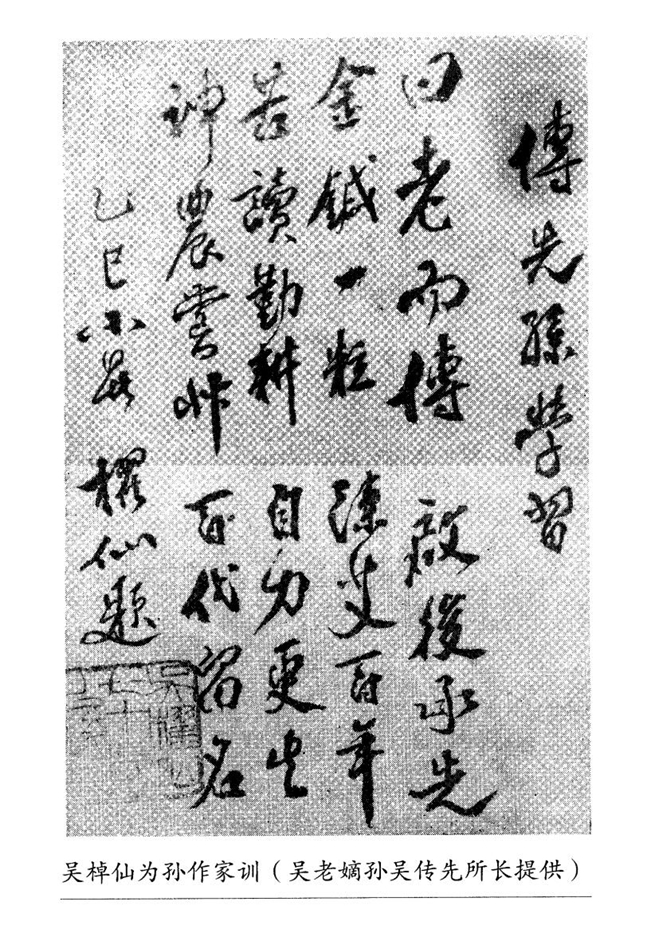 傳先孫學習
曰老而傳 啟後承先
金鍼一粒 陳艾百年
苦讀勤耕 自力更生
神農嘗艸 百代留名
乙巳小暑 櫂仙题
吴棹仙为孙作家训（吴老嫡孙吴传先所长提供）